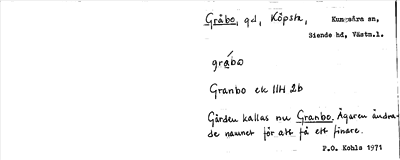 Gråbo, gd, Köpsta, Kungsåra sn,
Siende hd, Västm.l.
gråbo
Granbo ek IIH 2b
Gården kallas nu Granbo. Ägaren ändra-
de namnet för att få ett finare.
P.O. Kohls 1971